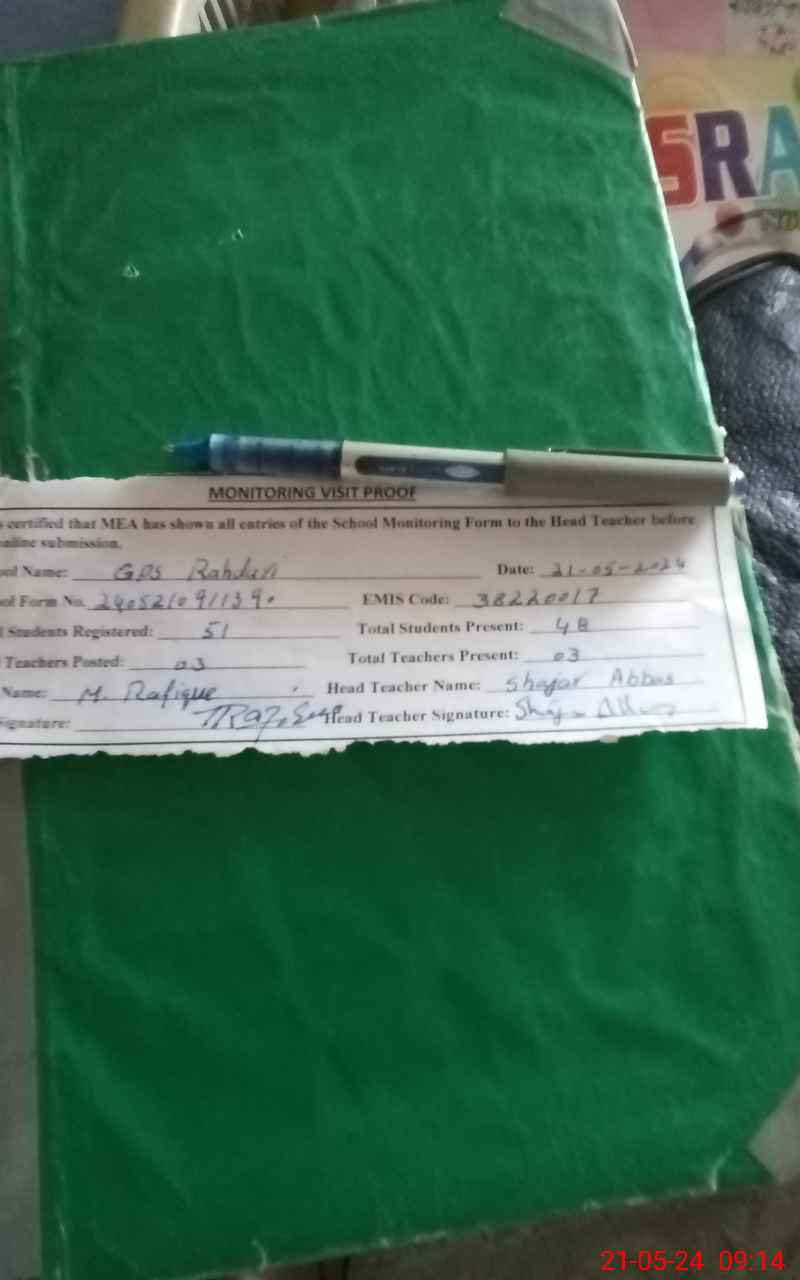 SRA
MONITORING VISIT PROOF
certified that MEA has shown all entries of the School Monitoring Form to the Head Teacher before
online submission.
ool Name: GPS Rahdari Date: 21-05-2024
ol Form No. 240521091139 EMIS Code: 38220017
Students Registered: 51 Total Students Present: 48
Teachers Posted: 03 Total Teachers Present: 03
Name: M. Rafique Head Teacher Name: Shajar Abbas
Signature: Head Teacher Signature:
21-05-24 09:14